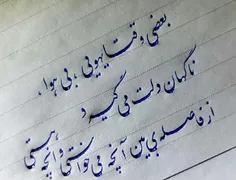 بعضی وقتا یهویی، بی هوا،
ناگهان دلت می گیرد
از فاصله بین آنچه می خواستی و آنچه هستی